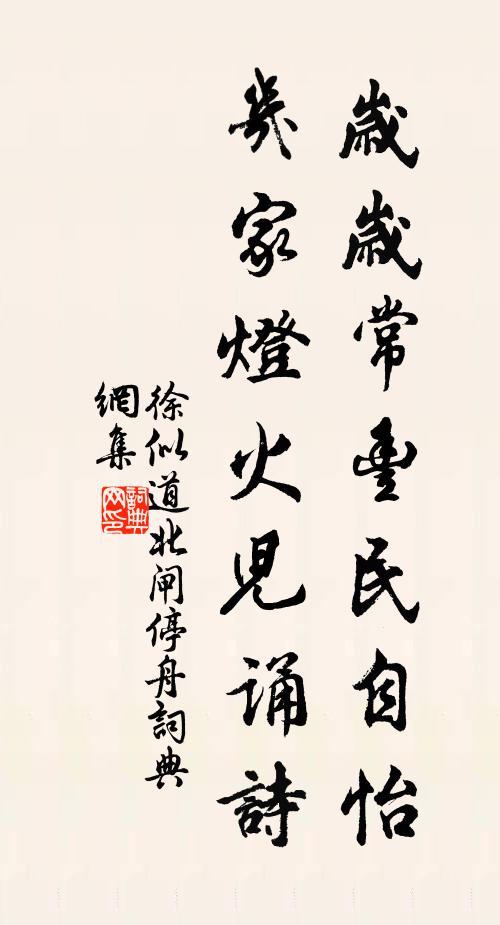 歲歲常豐民自怡
幾家燈火児誦詩
徐似道北闸停舟詞典
網集
詞典
网印